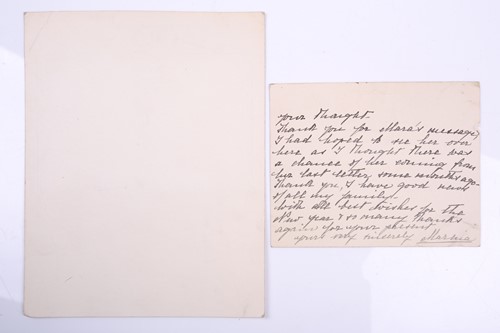 your thought.
Thank you for Mara's message,
I had hoped to see her over
here as I thought there was
a chance of her coming from
her last letter, some months ago.
Thank you, I have good news
of all my family.
With all best wishes for the
New Year & so many thanks
again for your present
yours very sincerely